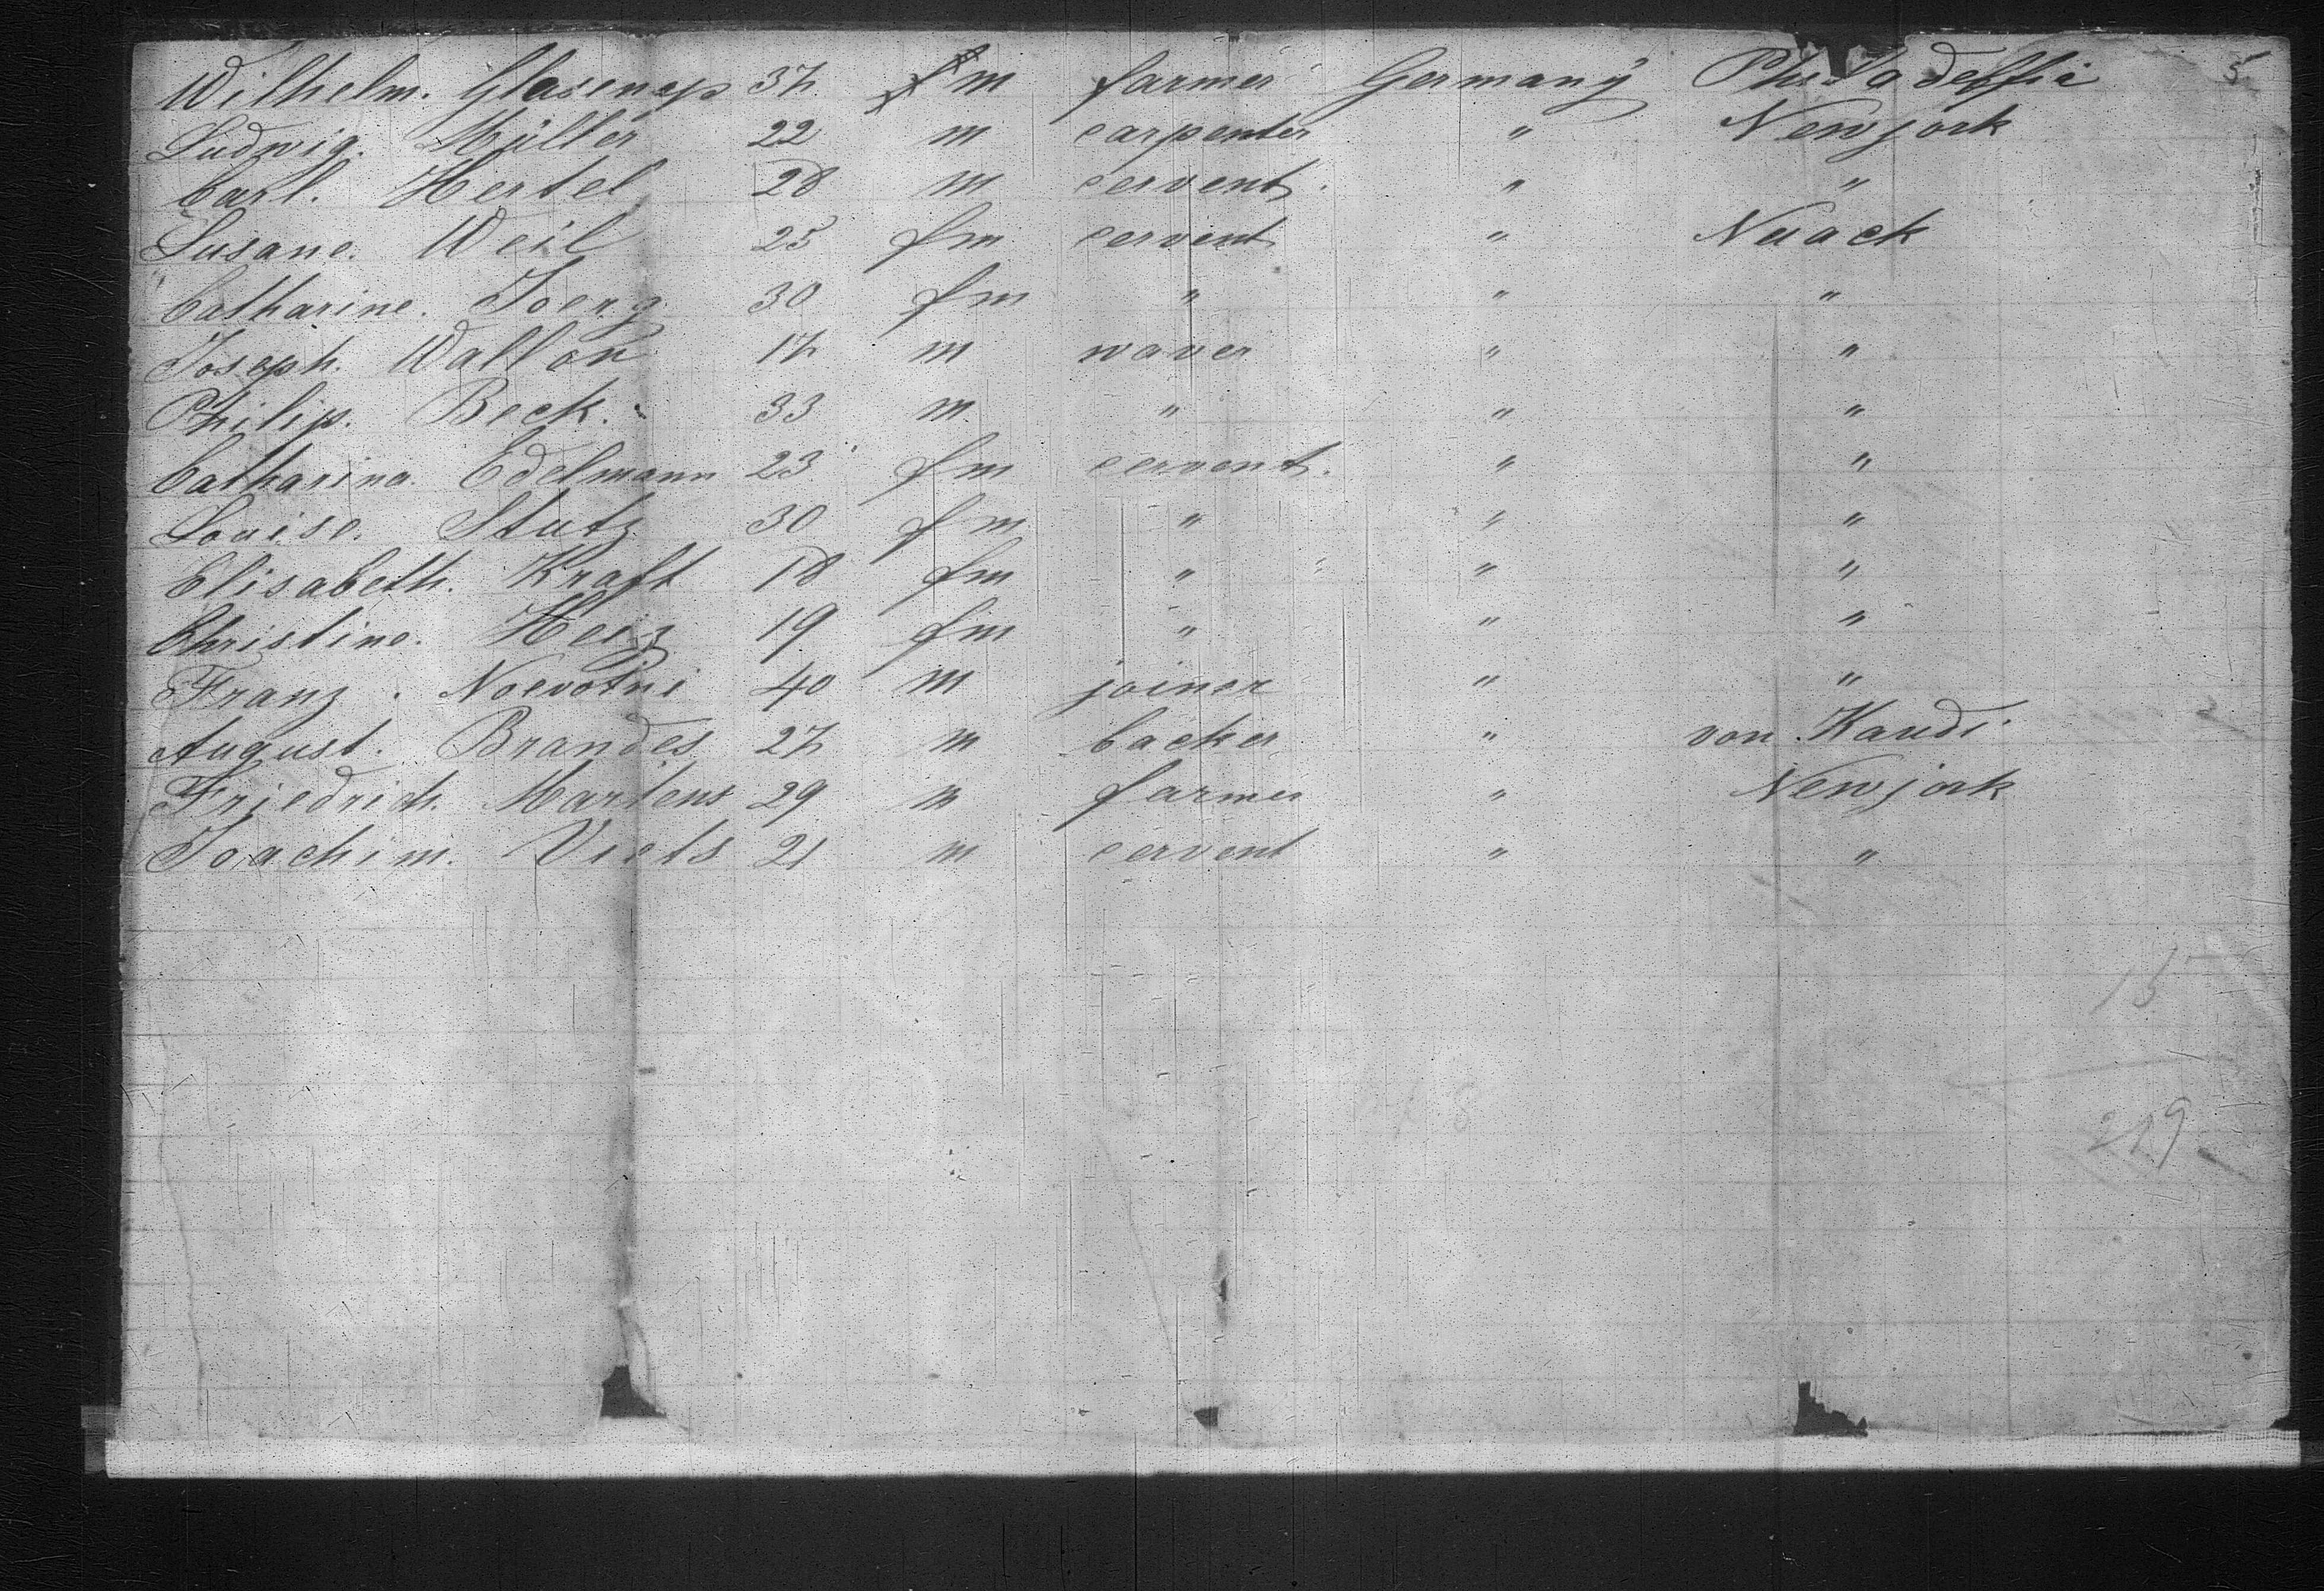 Wilhelm. Glasenap 37 m farmer Germany Philadelffia 5
Ludwig. Müller 22 m carpenter " Newjork
Carl. Hertel 28 m servent. " "
Susane. Weil 25 fm servent "
Catharine. Joerg 30 fm " " "
Joseph. Wallon 17 m waver " "
Philip. Beck. 33 m " " "
Catharina. Edelmann 23 fm servent. " "
Louise. Stutz 30 fm " " "
Elisabeth. Kraft 18 fm " " "
Christine. Heiz 19 fm " " "
Franz. Noevotni 40 m joiner " "
August. Brandes 27 m backer " von Kaudi
Friedrich. Martens 29 m farmer " Newjork
Joachim. Viets 21 m servent " "
15
219